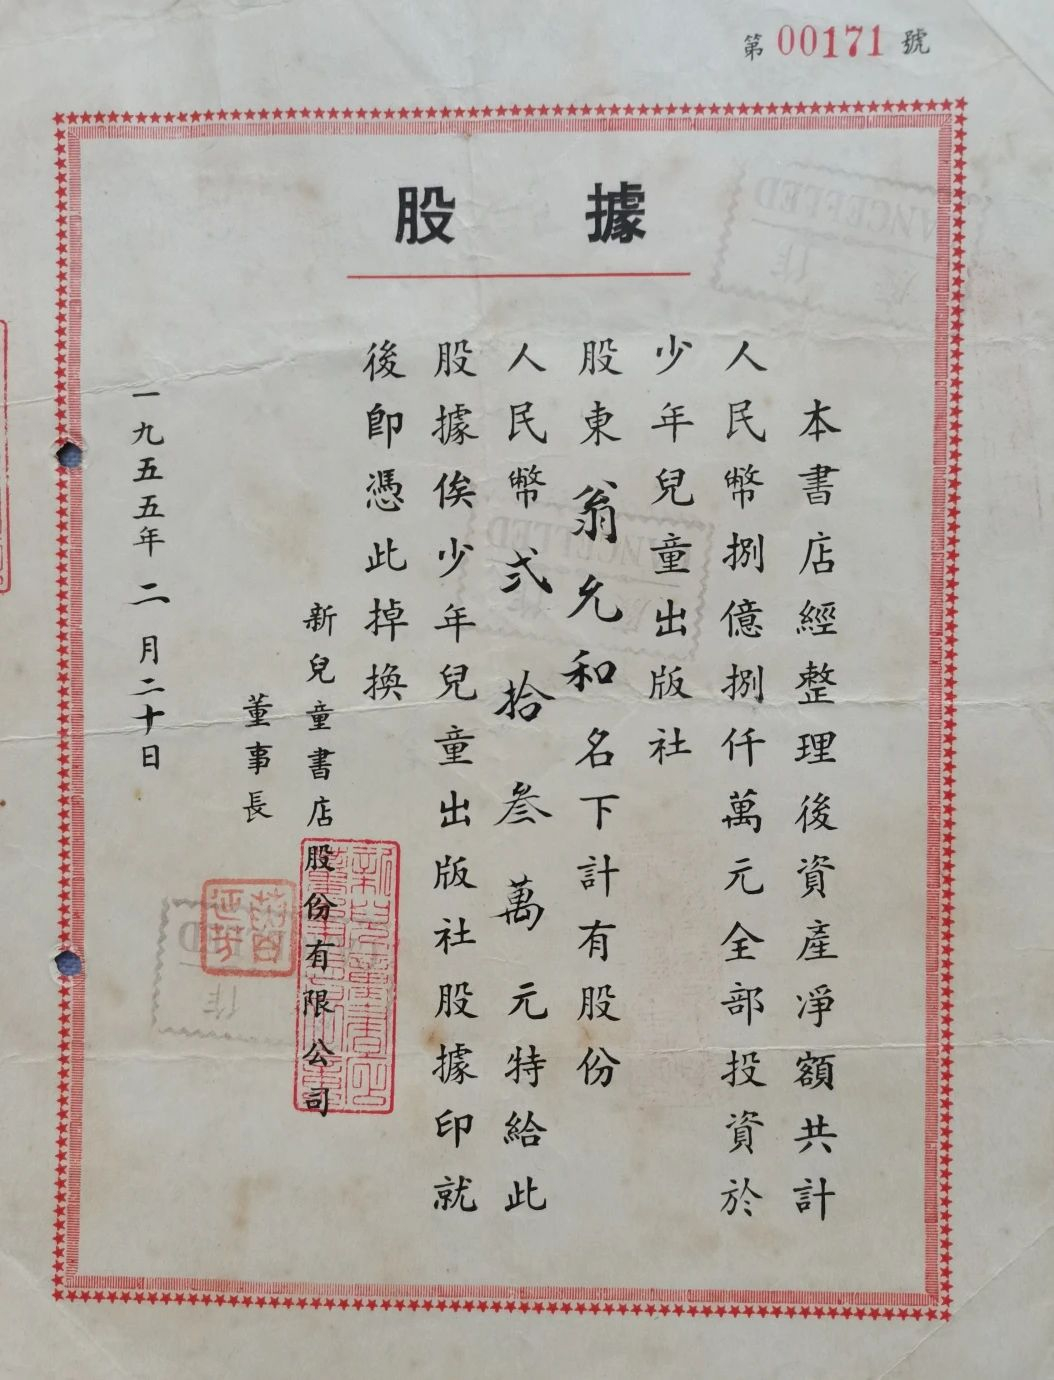 第 00171 號
股據
本書店經整理後資產淨額共計
人民幣捌億捌仟萬元全部投資於
少年兒童出版社
股東翁允和名下計有股份
人民幣弍拾叁萬元特給此
股據俟少年兒童出版社股據印就
後卽憑此掉換
新兒童書店股份有限公司
董事長
一九五五年二月二十日
CANCELLED
作廢
CANCELLED
作